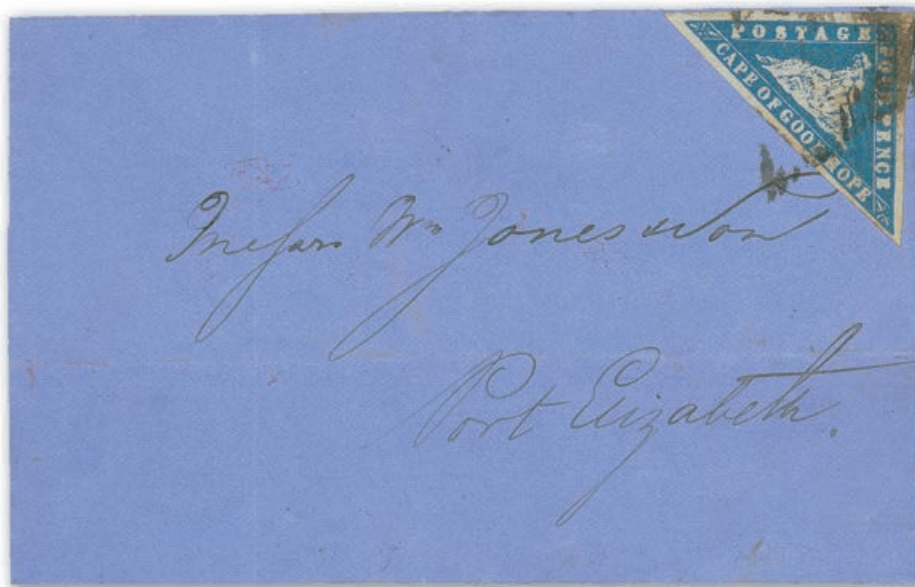 POSTAGE
FOUR PENCE
CAPE OF GOOD HOPE
Messrs Wm Jones & Son
Port Elizabeth.